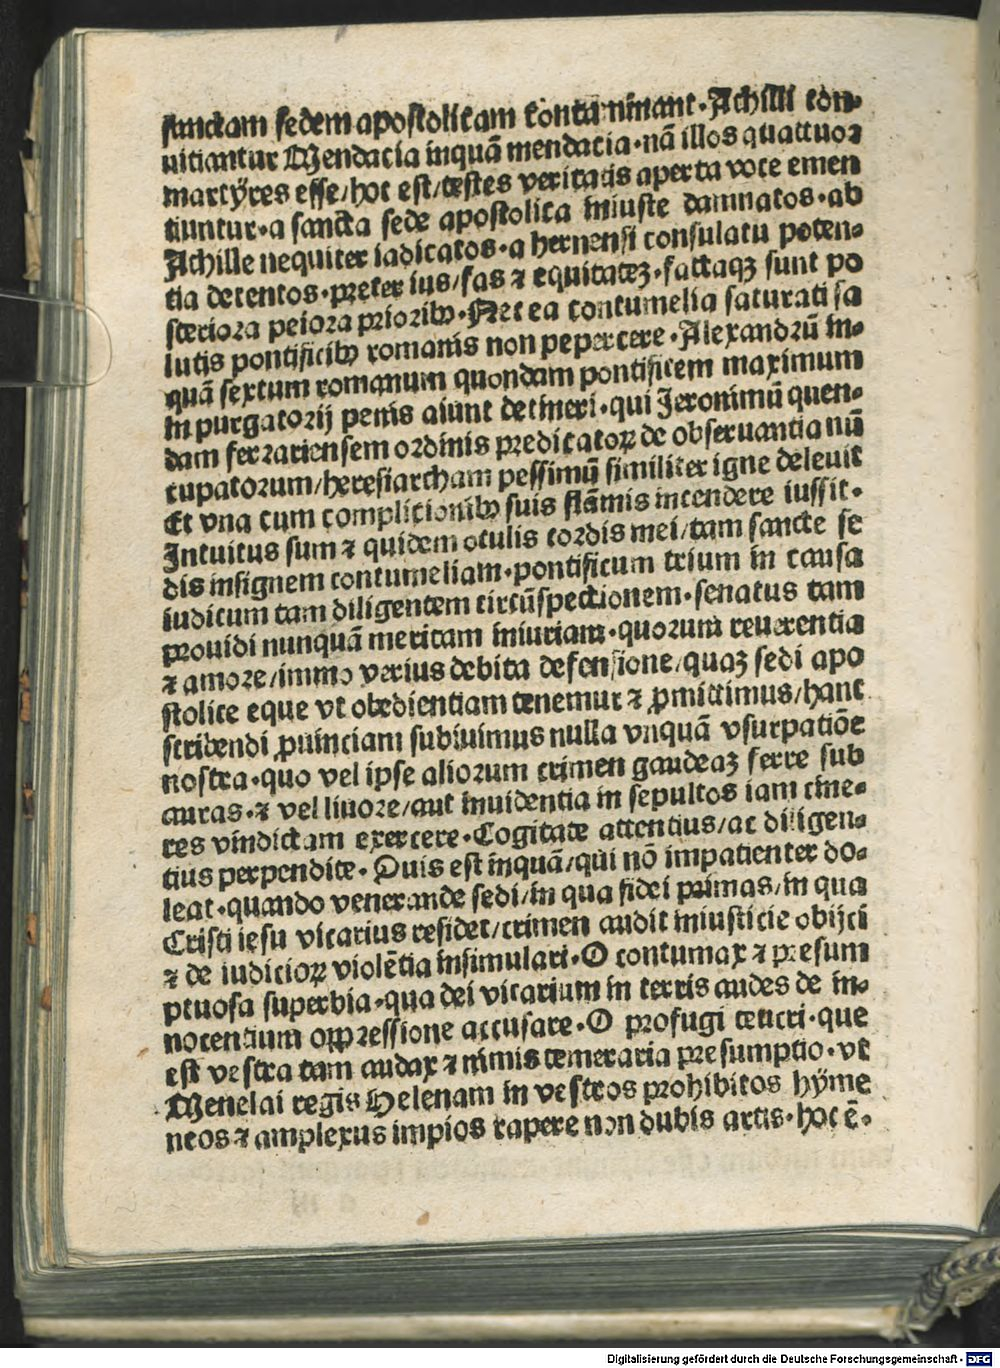 sanctam sedem apostolicam contaminant. Achilli con-
uitiantur Mendacia inquā mendacia. nā illos quattuor
martÿres esse/hoc est/testes veritatis aperta voce emen
tiuntur. a sancta sede apostolica iniuste damnatos. ab
Achille nequiter iadicatos. a bernensi consulatu poten-
tia detentos. preter ius/fas ⁊ equitateꝫ. factaqꝫ sunt po
steriora peiora prioribꝰ. Nec ea contumelia saturati sa
lutis pontificibꝰ romanis non pepercere. Alexandrū in-
quā sextum romanum quondam pontificem maximum
in purgatorij penis aiunt detineri. qui Jeronimū quen-
dam ferrariensem ordinis predicatoꝝ de obseruantia nū
cupatorum/heresiarcham pessimū similiter igne deleuit
Et vna cum complicionibꝰ suis flāmis incendere iussit.
Intuitus sum ⁊ quidem oculis cordis mei/tam sancte se
dis insignem contumeliam. pontificum trium in causa
iudicum tam diligentem circūspectionem. senatus tam
prouidi nunquā meritam iniuriam. quorum reuerentia
⁊ amore/immo verius debita defensione/quaꝫ sedi apo
stolice eque vt obedientiam tenemur ⁊ ꝓmittimus/hanc
scribendi ꝓuinciam subiuimus nulla vnquā vsurpatiōe
nostra. quo vel ipse aliorum crimen gaudeaꝫ ferre sub
auras. ⁊ vel liuore/aut inuidentia in sepultos iam cine-
res vindictam exercere. Cogitate attentius/ac diligen-
tius perpendite. Quis est inquā/qui nō impatienter do-
leat. quando venerande sedi/in qua fidei primas/in qua
Cristi iesu vicarius residet/crimen audit iniusticie obijci
⁊ de iudicioꝝ violētia insimulari. O contumax ⁊ presum
ptuosa superbia. qua dei vicarium in terris audes de in-
nocentium oppressione accusare. O profugi teucri. que
est vestra tam audax ⁊ nimis temeraria presumptio. vt
Menelai regis Helenam in vestros prohibitos hÿme
neos ⁊ amplexus impios rapere non dubis artis. hoc ē.
Digitalisierung gefördert durch die Deutsche Forschungsgemeinschaft - DFG